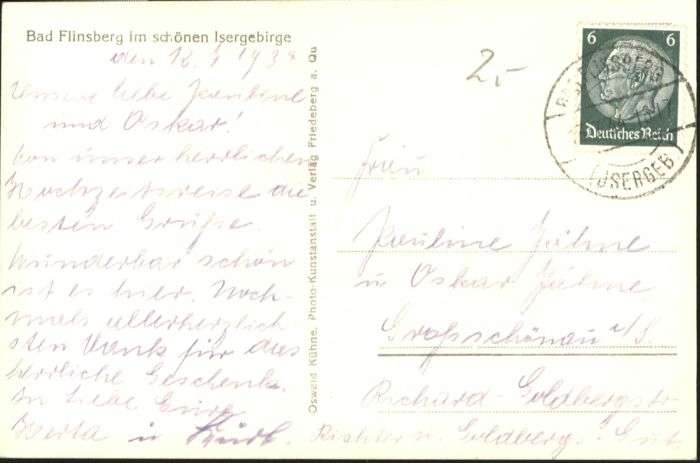 Bad Flinsberg im schönen Isergebirge
den 18. 193
Unsere liebe Pauline
und Oskar!
Von unser herrlichen
Hochzeitsreise die
besten Grüße.
Wunderbar schön
ist es hier. Noch-
mals allerherzlich-
sten Dank für das
herrliche Geschenk.
In Liebe Eure
Herta u
Oswald Kühne, Photo-Kunstanstalt u. Verlag Friedeberg a. Qu
2,-
6 6
Deutsches Reich
(ISERGEB.)
Frau
Pauline Jälme
u Oskar Jälme
Grossschönau i/S.
Richard-Goldbergstr
Richter u. Goldbergs-Gut.